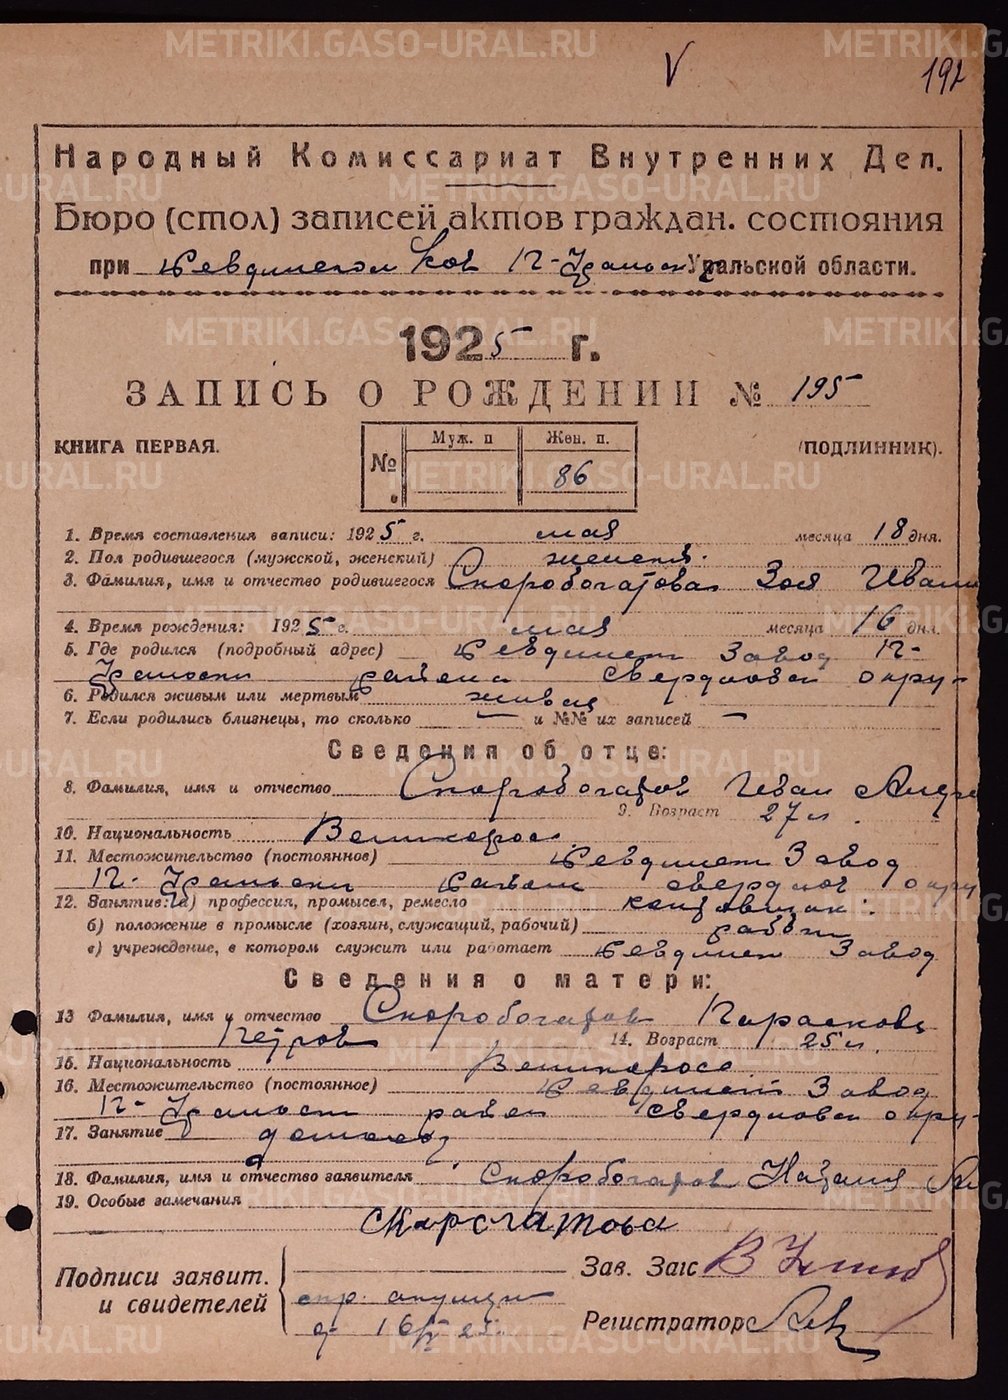 192
Народный Комиссариат Внутренних Дел.
Бюро (стол) записей актов граждан. состояния
при Невдинском П-Уральск Уральской области.
1925 г.
ЗАПИСЬ О РОЖДЕНИИ № 195
КНИГА ПЕРВАЯ. № Муж. п Жен. п. 86 (ПОДЛИННИК).
1. Время составления записи: 1925 г. мая месяца 18 дня.
2. Пол родившегося (мужской, женский) женский.
3. Фамилия, имя и отчество родившегося Скоробогатова Зоя Иван
4. Время рождения: 1925 г. мая месяца 16 дня.
5. Где родился (подробный адрес) Завод П-
Уральск района Свердловск окру-
6. Родился живым или мертвым живая
7. Если родились близнецы, то сколько — и №№ их записей —
Сведения об отце:
8. Фамилия, имя и отчество Скоробогатов Иван Андре
9. Возраст 27 л.
10. Национальность Великорос.
11. Местожительство (постоянное) Завод
П-Уральск район свердлов окру
12. Занятие: а) профессия, промысел, ремесло
б) положение в промысле (хозяин, служащий, рабочий) рабоч
в) учреждение, в котором служит или работает Завод
Сведения о матери:
13 Фамилия, имя и отчество Скоробогатов Парасковь
Петров 14. Возраст 25 л.
15. Национальность Великоросс
16. Местожительство (постоянное) Завод
П-Уральск район Свердловск окру-
17. Занятие домохоз
18. Фамилия, имя и отчество заявителя Скоробогатов Наталия
19. Особые замечания
Подписи заявит.
и свидетелей
спр. акушерк
16/V 25.
Зав. Загс
Регистратор
METRIKI.GASO-URAL.RU